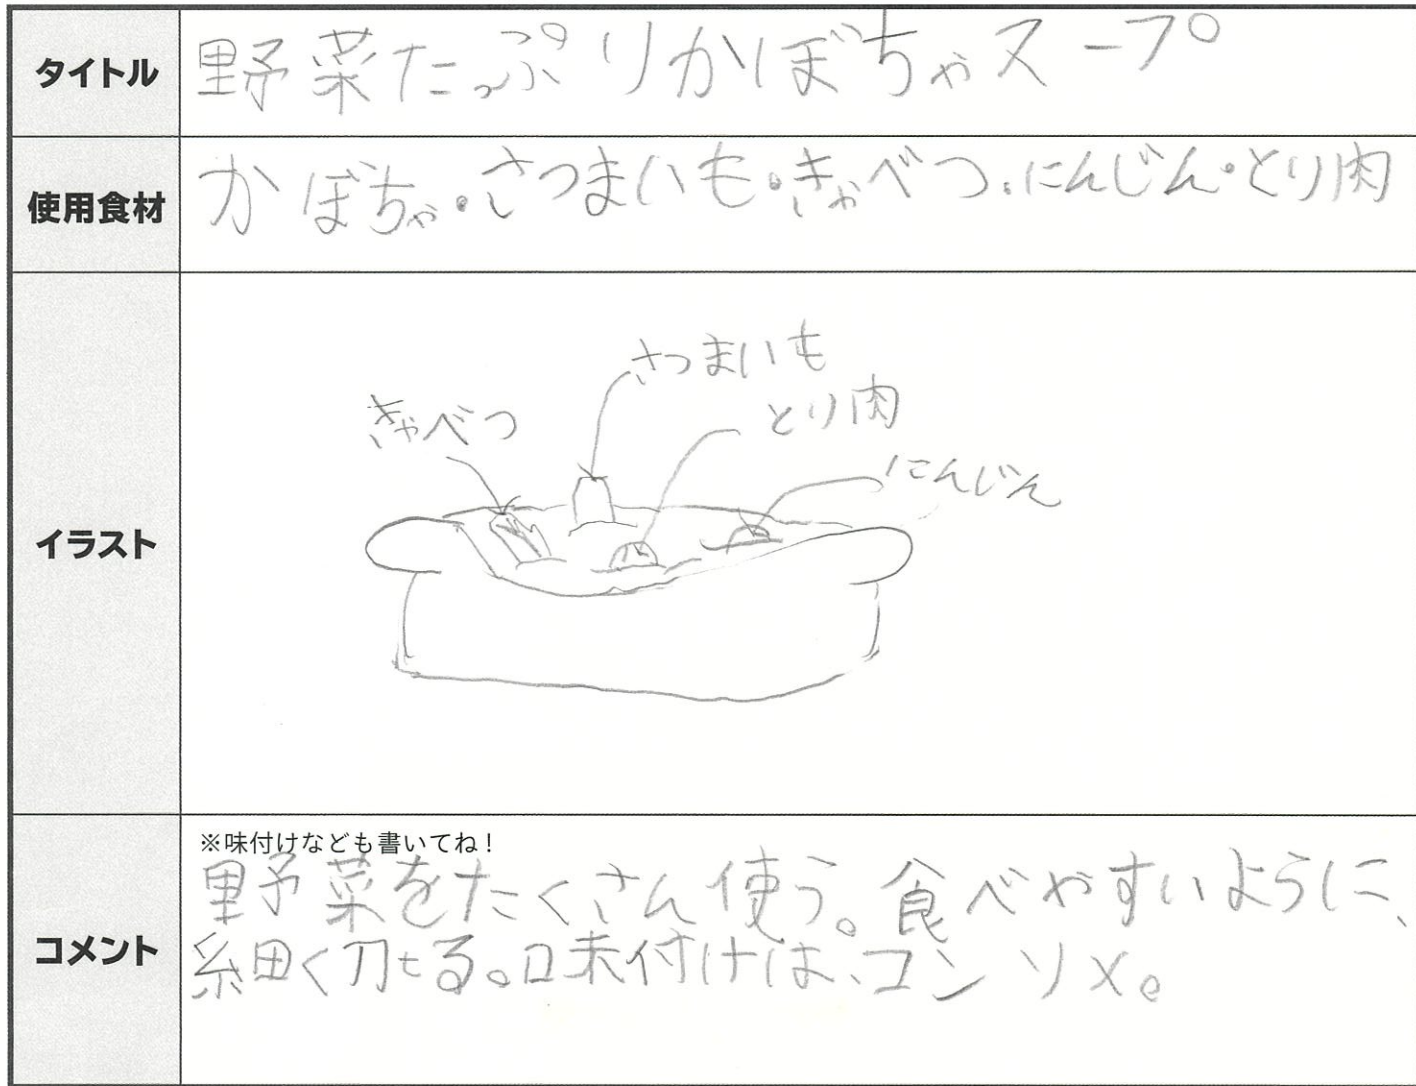 タイトル
野菜たっぷりかぼちゃスープ
使用食材
かぼちゃ・さつまいも・きゃべつ・にんじん・とり肉
イラスト
さつまいも
とり肉
きゃべつ
にんじん
コメント
※味付けなども書いてね！
野菜をたくさん使う。食べやすいように、
細く切る。味付けは、コンソメ。